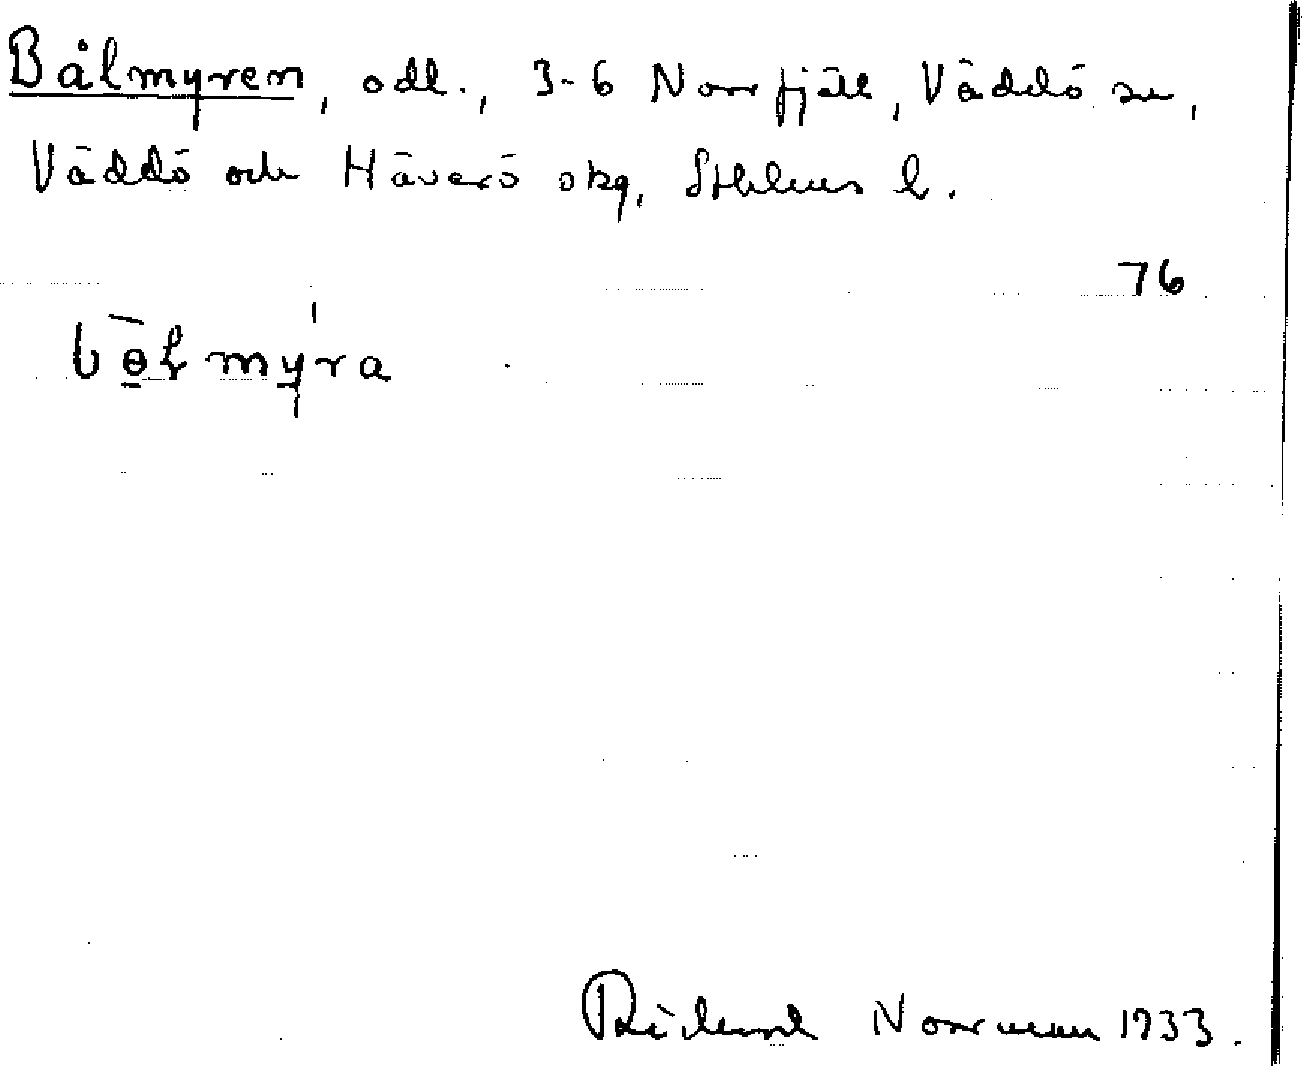 Bålmyren, odl., 3-6 Norrfjäll, Väddö sn,
Väddö och Häverö skg, Sthlms l.
76
bɵ̄lmýra
Rickard Norrman 1933.